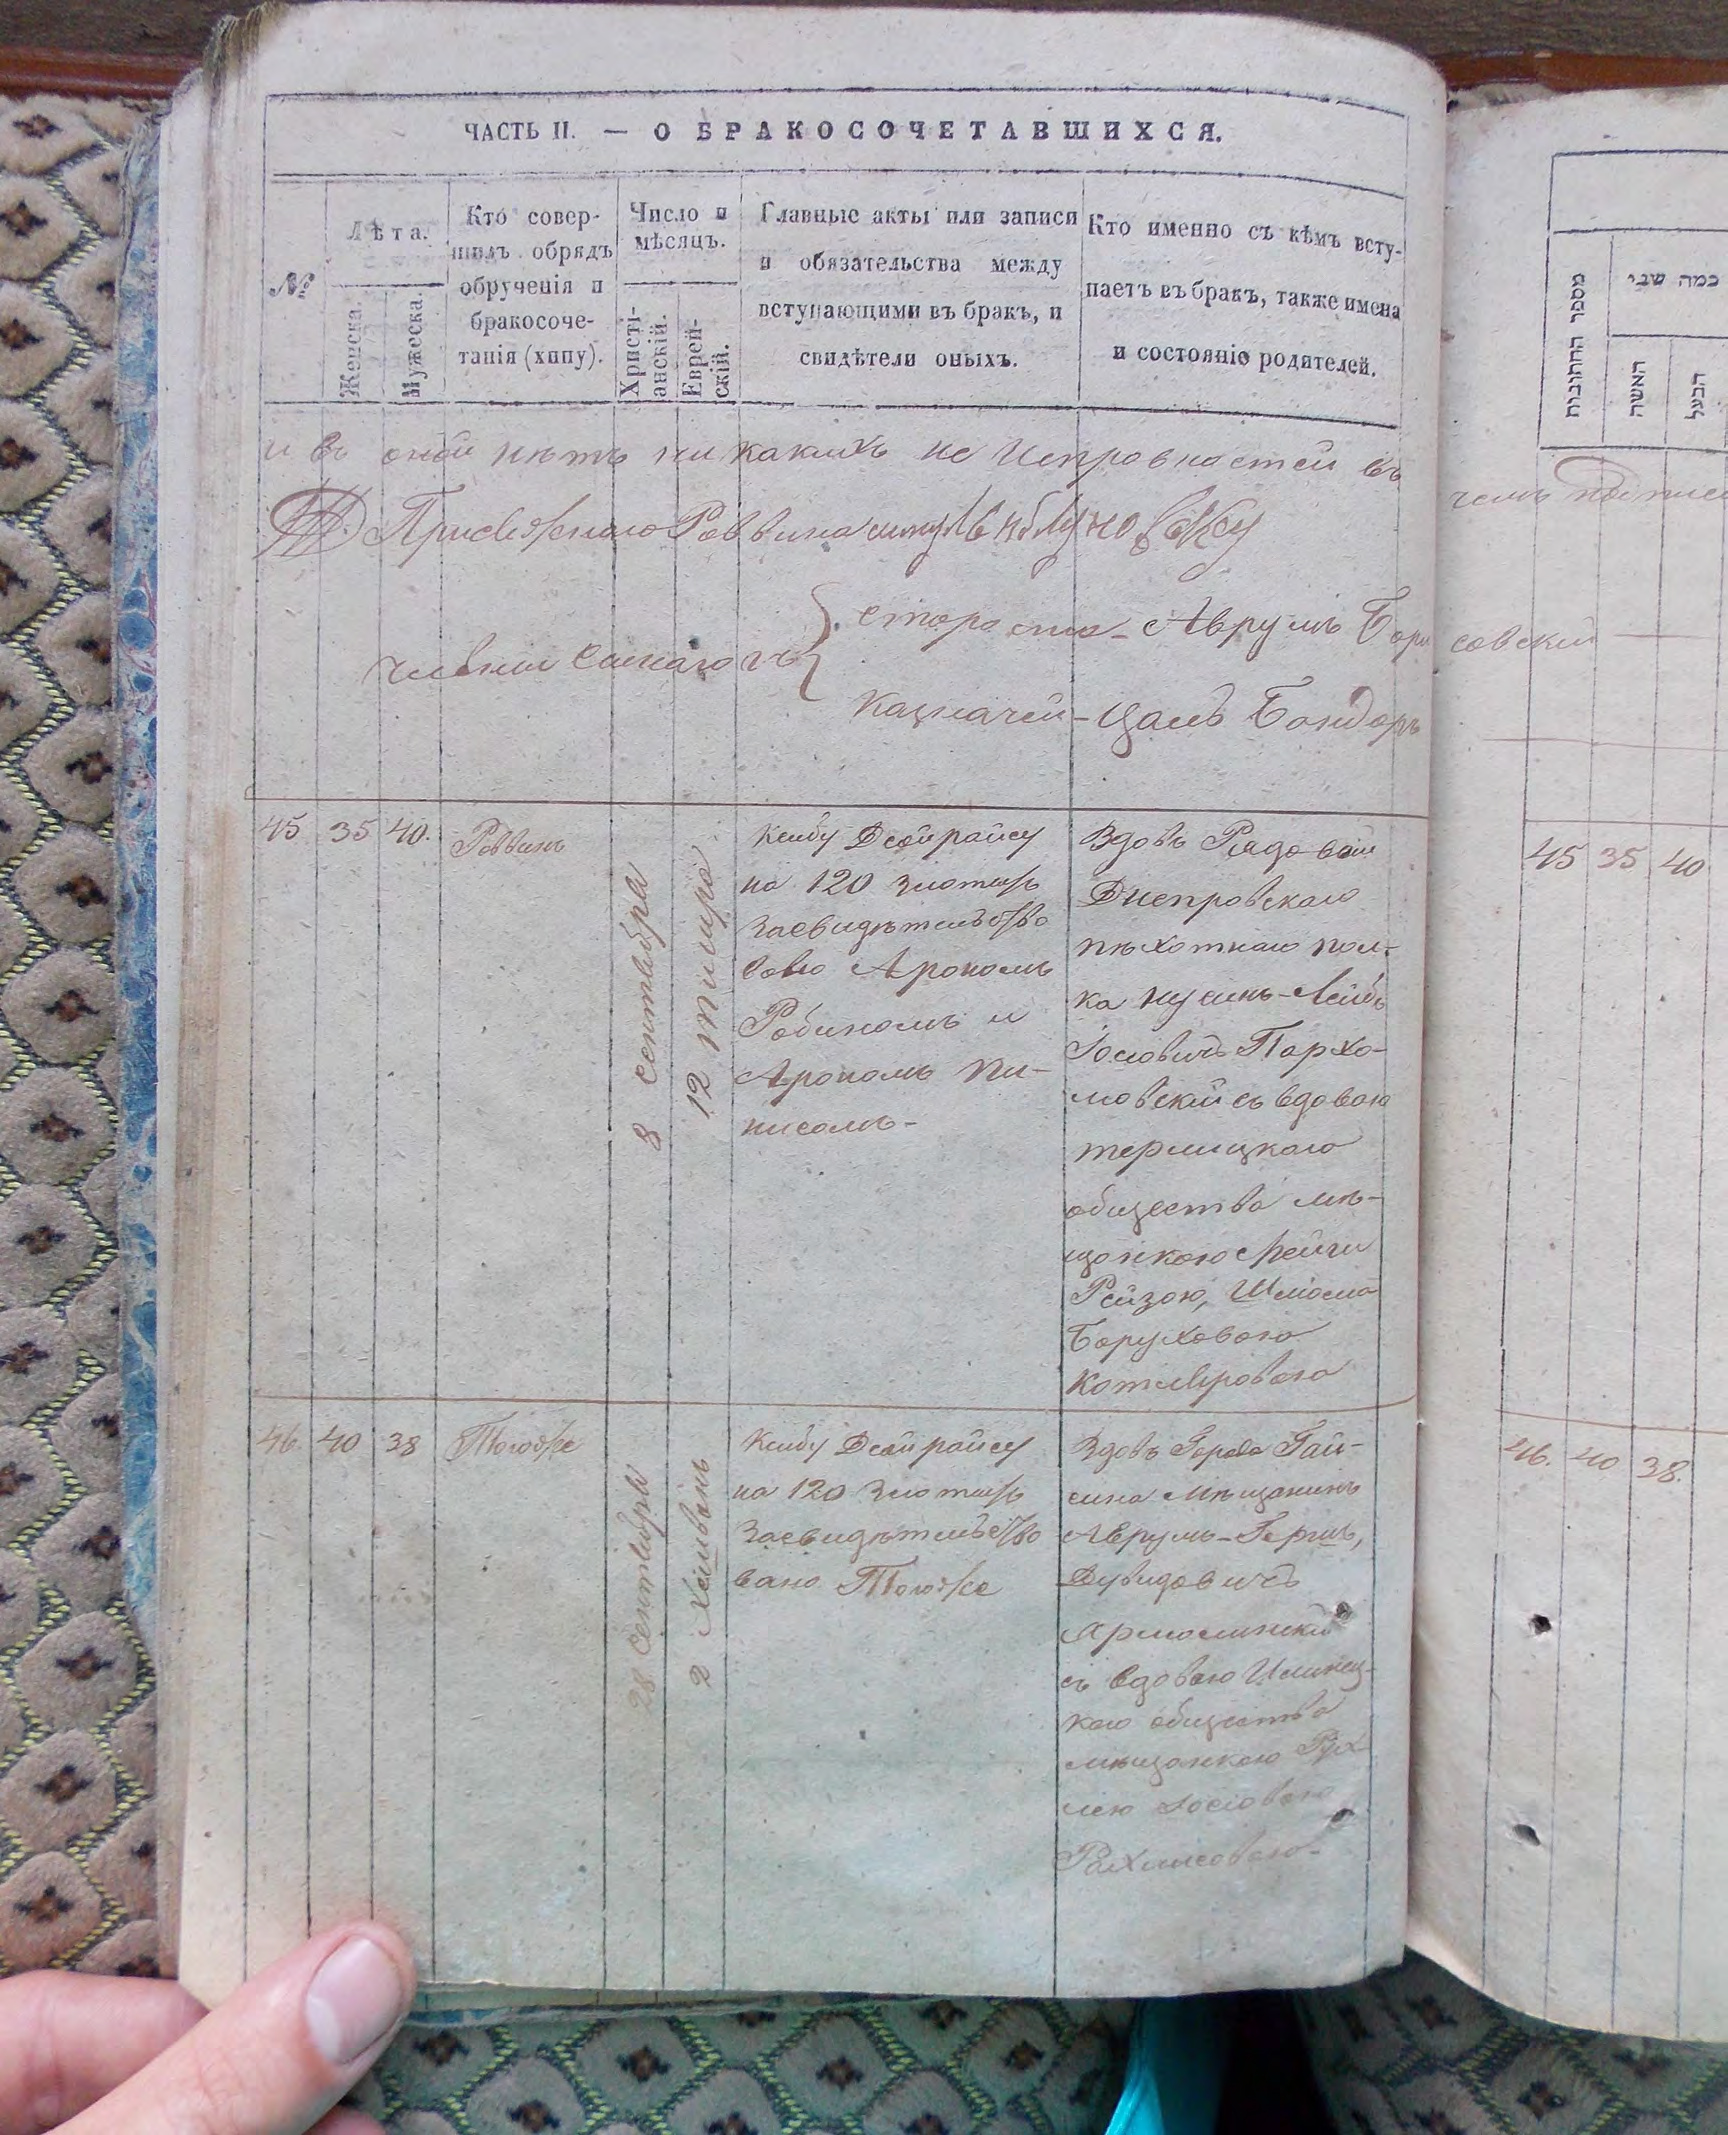 ЧАСТЬ II. — О БРАКОСОЧЕТАВШИХСЯ.
№
Лѣта.
Женска.
Мужеска.
Кто совер-
шилъ обрядъ
обрученія и
бракосоче-
танія (хипу).
Число и
мѣсяцъ.
Христі-
анскій.
Еврей-
скій.
Главные акты или записи
и обязательства между
вступающими въ бракъ, и
свидѣтели оныхъ.
Кто именно съ кѣмъ всту-
паетъ въ бракъ, также имена
и состояніе родителей.
и въ оной нѣтъ ни какихъ не исправностей въ
чемъ
Раввина
староста - Аврумъ Бори
совскій
казначей - Цаль Бондарь
45 35 40. Раввинъ
8 сентября
12 тишра
на 120 злотыхъ
засвидѣтельство
вано Арономъ
Рабиномъ и
Арономъ Пи-
нисомъ -
Вдовъ Рядовой
Днепровскаго
пѣхотнаго пол-
ка Нусинъ - Лейбъ
Іосіовичъ Пархо-
мовскій съ вдовою
терлицкаго
общества мѣ-
щанкою Фейги
Рейзою, Шліома
Боруховою
46. 40 38 Тогоже
28 сентября
2 Хешванъ
на 120 злотыхъ
засвидѣтельство
вано Тогоже
Вдовъ Города Гай-
сина Мѣщанинъ
Аврумъ - Гершъ,
Дувидовичъ
съ вдовою Илинец-
каго общества
мѣщанкою Рух
лею Іосіовою
מספר החתונות
כמה שני
האשה
הבעל
45 35 40
46. 40 38.